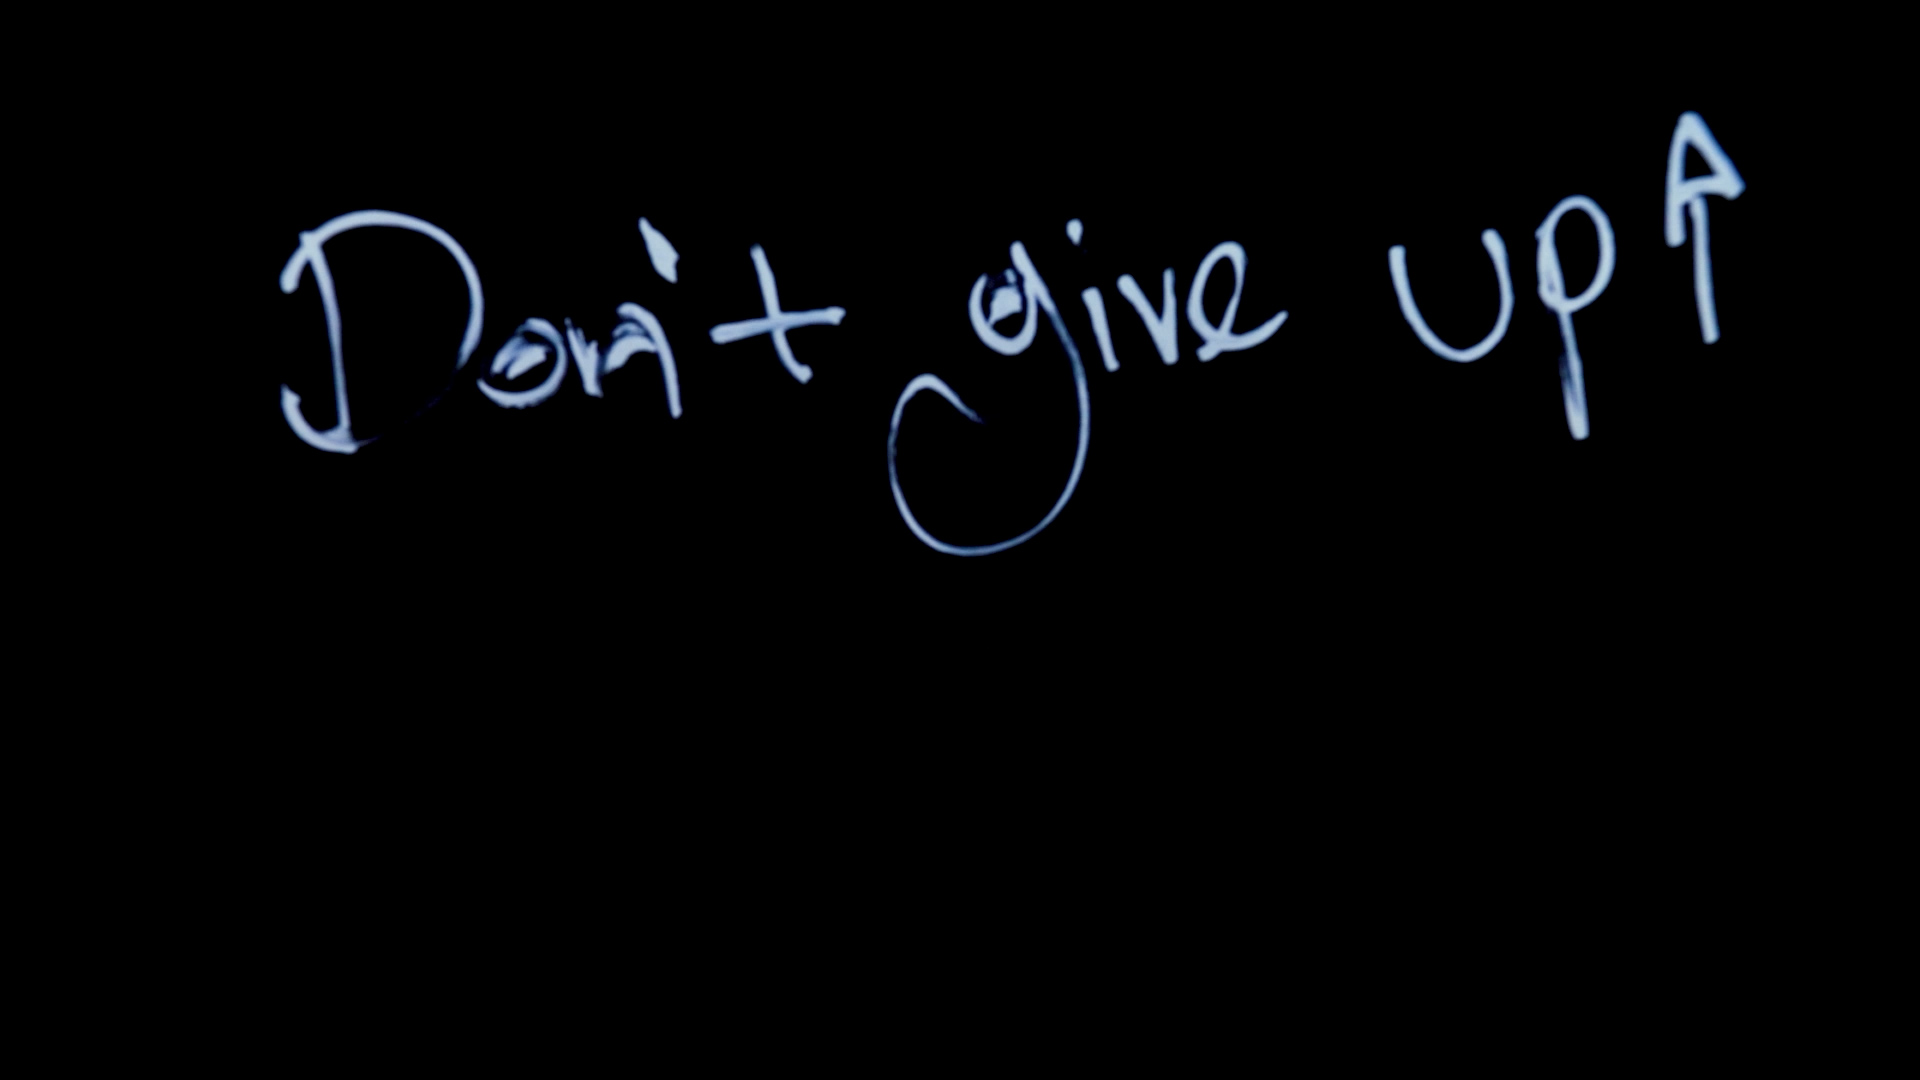 Don't give up ↑